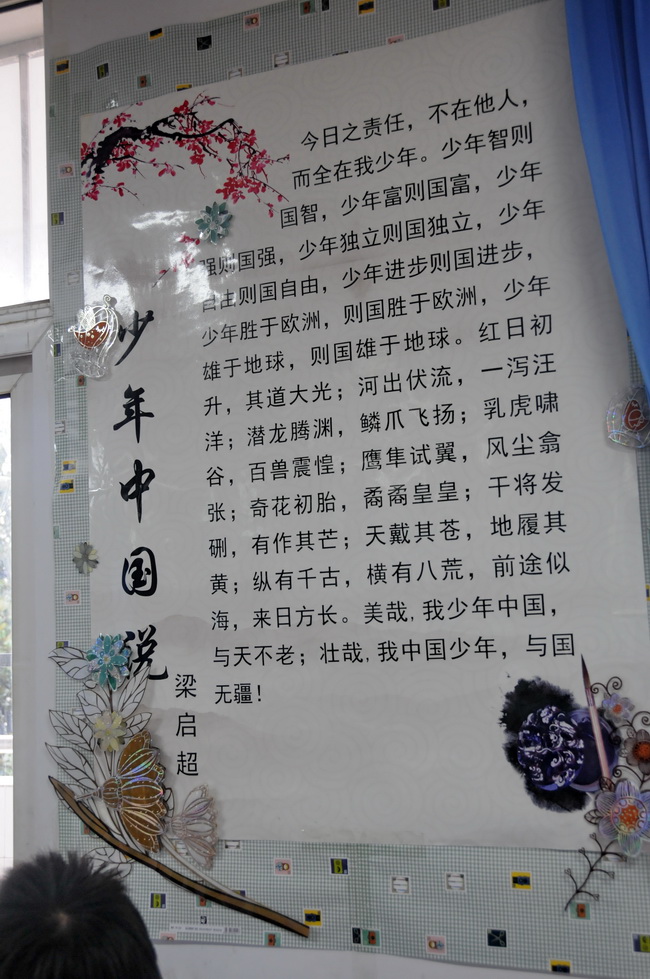 少年中国说
梁启超
今日之责任，不在他人，
而全在我少年。少年智则
国智，少年富则国富，少年
强则国强，少年独立则国独立，少年
自由则国自由，少年进步则国进步，
少年胜于欧洲，则国胜于欧洲，少年
雄于地球，则国雄于地球。红日初
升，其道大光；河出伏流，一泻汪
洋；潜龙腾渊，鳞爪飞扬；乳虎啸
谷，百兽震惶；鹰隼试翼，风尘翕
张；奇花初胎，矞矞皇皇；干将发
硎，有作其芒；天戴其苍，地履其
黄；纵有千古，横有八荒，前途似
海，来日方长。美哉,我少年中国，
与天不老；壮哉,我中国少年，与国
无疆！